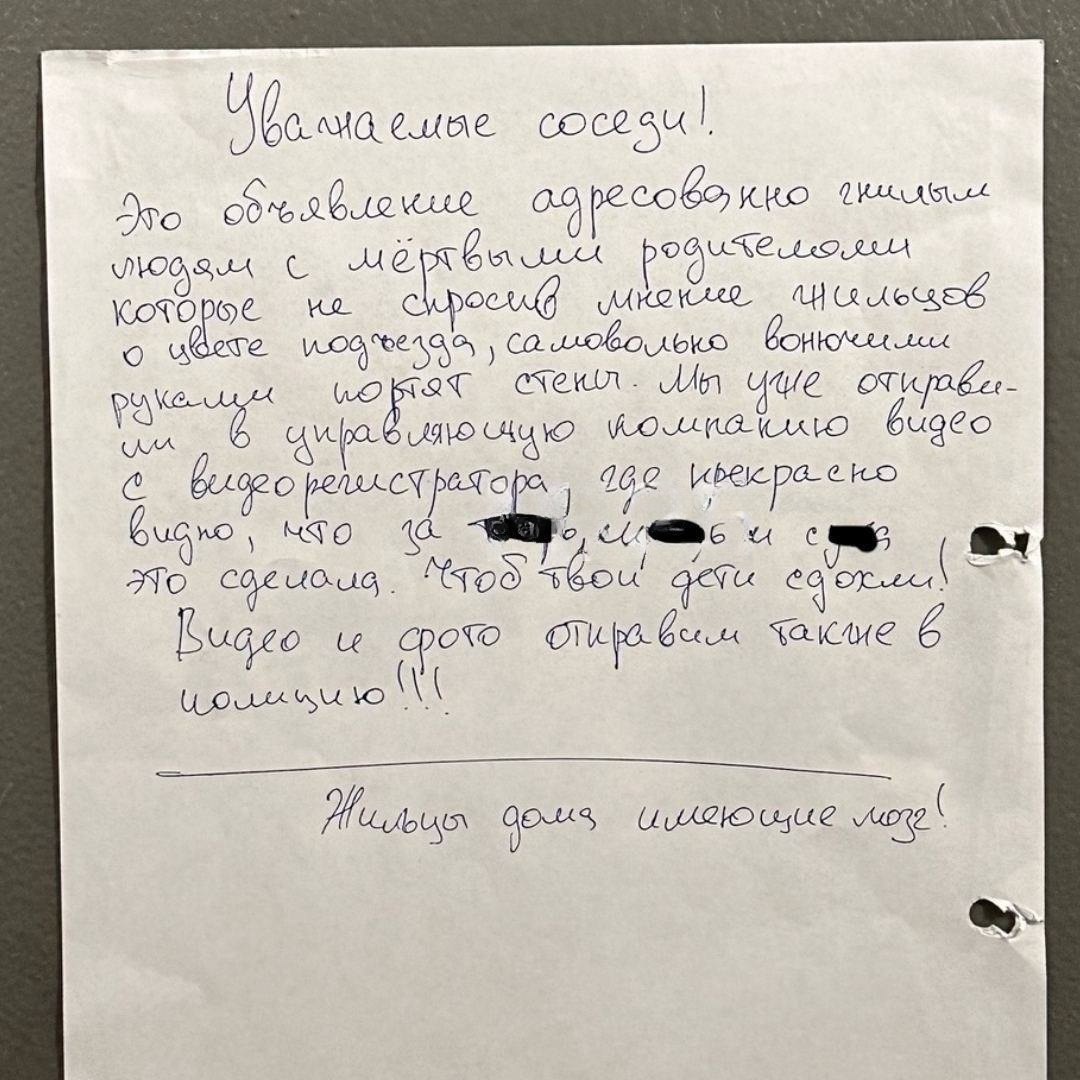 Уважаемые соседи!
Это объявление адресованно гнилым
людям с мёртвыми родителями
которые не спросив мнение жильцов
о цвете подъезда, самовольно вонючими
руками портят стены. Мы уже отправи-
ли в управляющую компанию видео
с видеорегистратора, где прекрасно
видно, что за и
это сделала. Чтоб твои дети сдохли!
Видео и фото отправим также в
полицию!!!
Жильцы дома имеющие мозг!